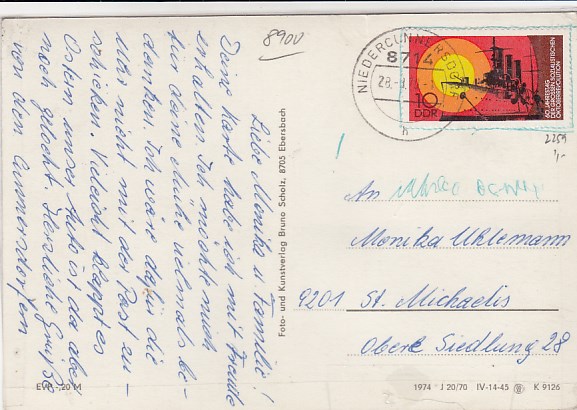 8900
Liebe Monika u. Familie!
Deine Karte habe ich mit Freude
erhalten. Ich möchte mich
für deine Mühe vielmals be-
danken. Ich wäre dafür die
Uhr nicht mit der Post zu-
schicken. Vieleicht klappt es
Ostern unser Auto ist da aber
noch gelackt. Herzliche Grüße
von den Cunnersdorfern
Foto- und Kunstverlag Bruno Scholz, 8705 Ebersbach
NIEDERCUNNERSDORF
8714
28.
h
10
DDR
60. JAHRESTAG
DER GROSSEN SOZIALISTISCHEN
OKTOBERREVOLUTION
2259
1,-
An
Monika Uhlemann
9201 St. Michaelis
Obere Siedlung 28
EVP -,20 M
1974 J 20/70 IV-14-45 K 9126